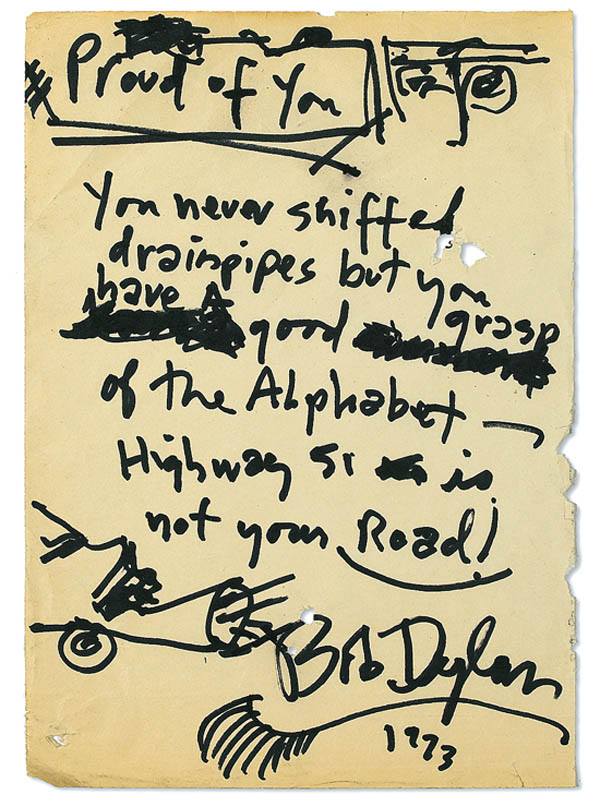 Proud of You
You never sniffed
drainpipes but you
have A good grasp
of the Alphabet —
Highway 51 is
not your Road!
Bob Dylan
1993